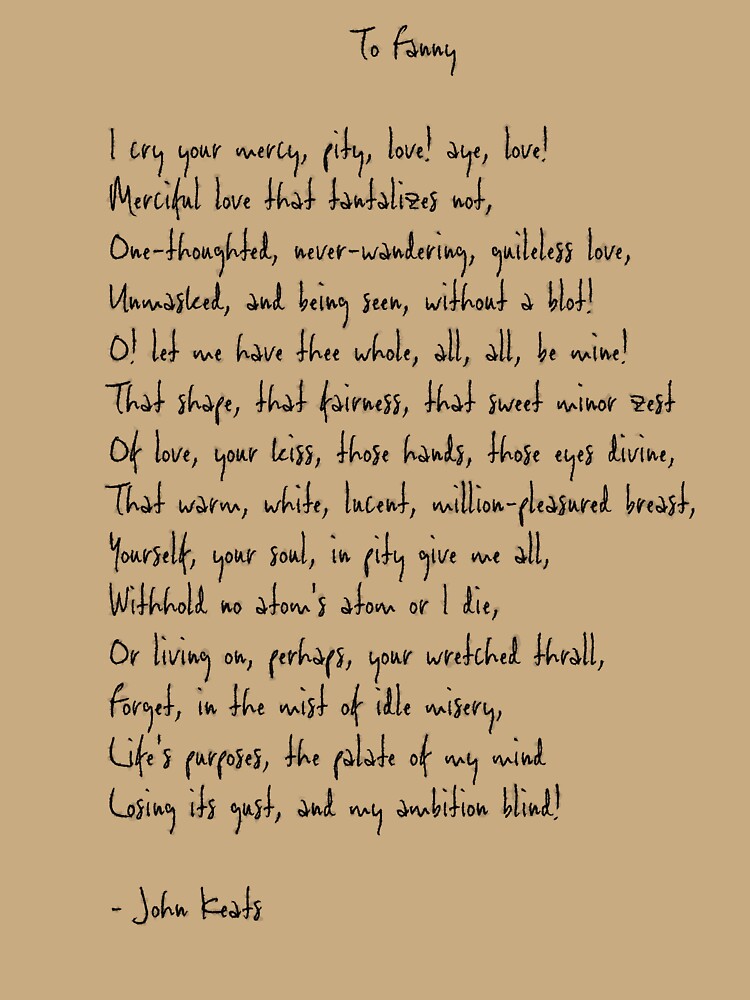 To Fanny
I cry your mercy, pity, love! aye, love!
Merciful love that tantalizes not,
One-thoughted, never-wandering, guileless love,
Unmasked, and being seen, without a blot!
O! let me have thee whole, all, all, be mine!
That shape, that fairness, that sweet minor zest
Of love, your kiss, those hands, those eyes divine,
That warm, white, lucent, million-pleasured breast,
Yourself, your soul, in pity give me all,
Withhold no atom's atom or I die,
Or living on, perhaps, your wretched thrall,
Forget, in the mist of idle misery,
Life's purposes, the palate of my mind
Losing its gust, and my ambition blind!
- John Keats